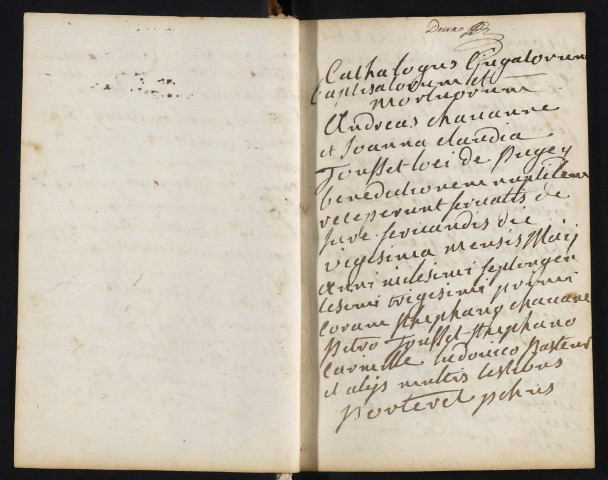 Cathalogus Conjugatorum
baptisatorum et
mortuorum
Andreas chavanne
et Joanna claudia
Tousset loci de Pugey
benedictionem nuptialem
receperunt servatis de
jure servandis die
vigesima mensis Maij
Anni millesimi septingen
tesimi trigesimi primi
Coram stephano chavane
petro Tousset stephano
Carimelle ludovico pasteur
et alijs multis testibus